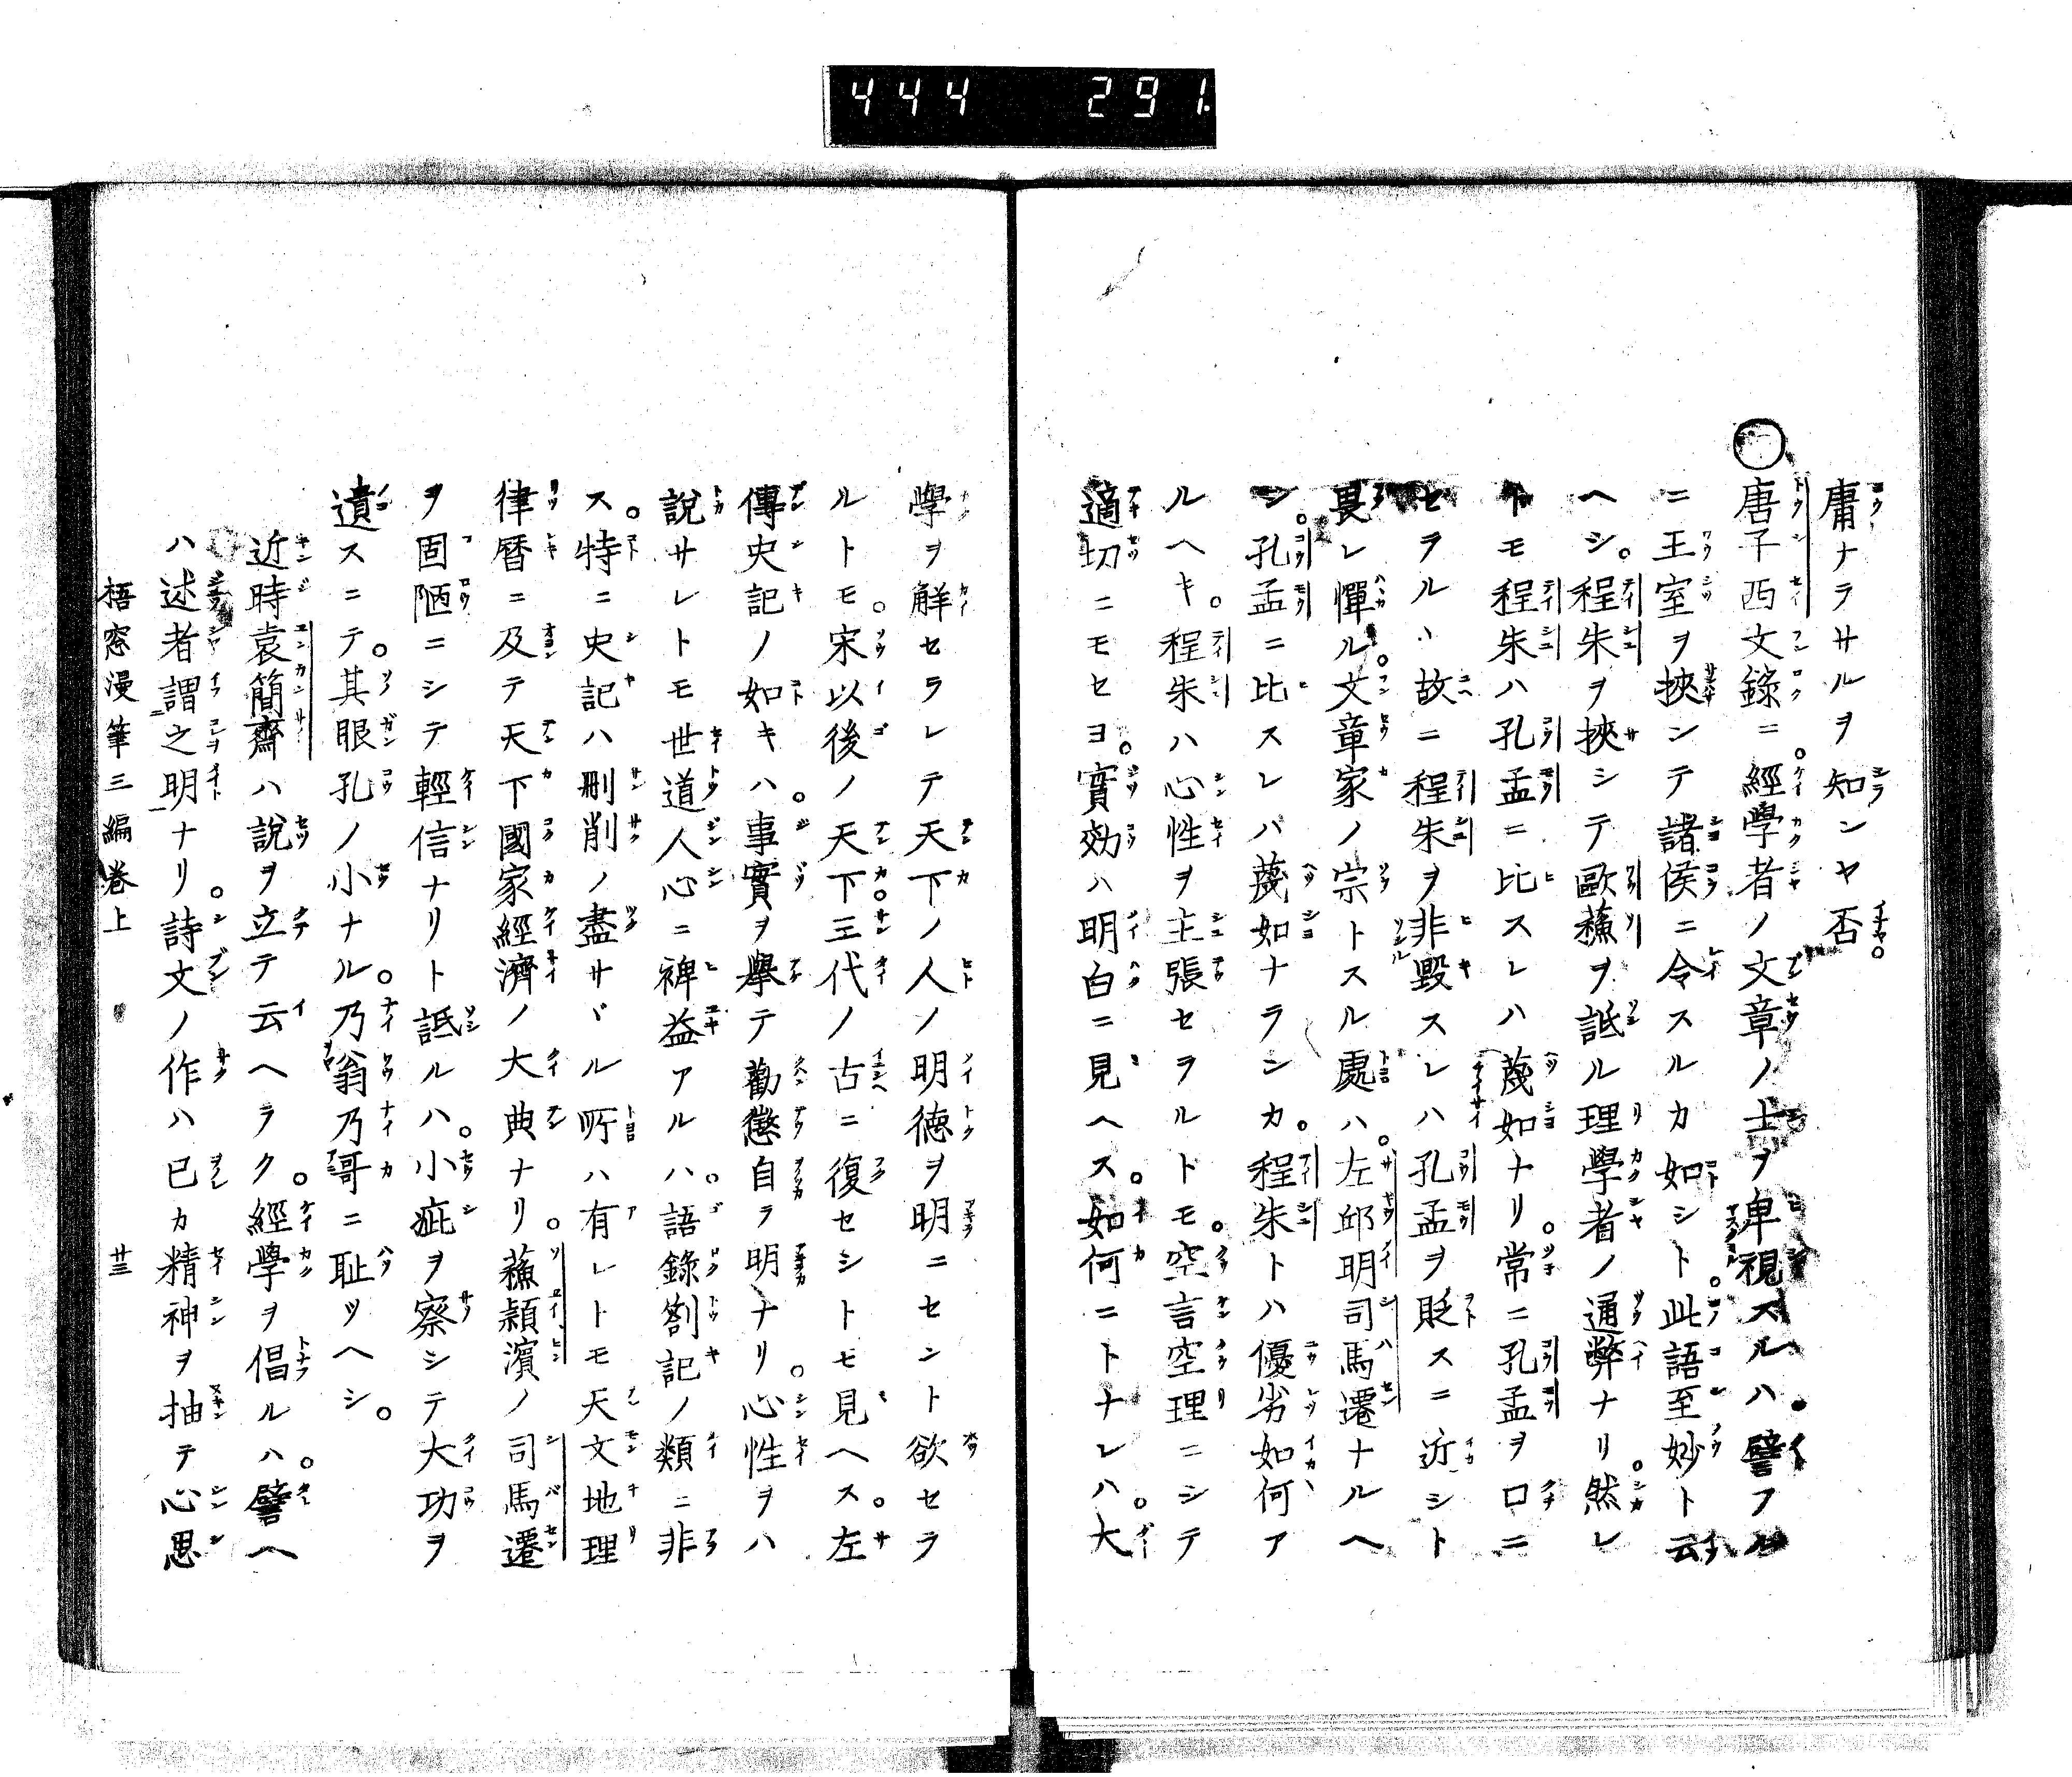 444 291.
庸ナラサルヲ知ンヤ否
〇唐子西文錄ニ。經學者ノ文章ノ士ヲ卑視スルハ。譬フル
ニ王室ヲ挾ンテ諸侯ニ令スルカ如シト。此語至妙ト云
ヘシ。程朱ヲ挾シテ歐蘓ヲ詆ル理學者ノ通弊ナリ。然レ
トモ程朱ハ孔孟ニ比スレハ蔑如ナリ。常ニ孔孟ヲ口ニ
セラル丶故ニ程朱ヲ非毀スレハ孔孟ヲ貶スニ近シト
畏レ憚ル。文章家ノ宗トスル處ハ。左邱明司馬遷ナルヘ
シ。孔孟ニ比スレバ蔑如ナランカ。程朱トハ優劣如何ア
ルヘキ。程朱ハ心性ヲ主張セラルトモ。空言空理ニシテ
適切ニモセヨ。實効ハ明白ニ見ヘス。如何ニトナレハ。大
學ヲ解セラレテ天下ノ人ノ明德ヲ明ニセント欲セラ
ルトモ。宋以後ノ天下三代ノ古ニ復セシトモ見ヘス。左
傳史記ノ如キハ。事實ヲ擧テ勸懲自ラ明ナリ。心性ヲハ
說サレトモ世道人心ニ裨益アルハ。語錄劄記ノ類ニ非
ス。特ニ史記ハ刪削ノ盡サヾル所ハ有レトモ天文地理
律曆ニ及テ天下國家經濟ノ大典ナリ。蘓潁濱ノ司馬遷
ヲ固陋ニシテ輕信ナリト詆ルハ。小疵ヲ察シテ大功ヲ
遺スニテ。其眼孔ノ小ナル。乃翁乃哥ニ耻ツヘシ。
近時袁簡齋ハ說ヲ立テ云ヘラク。經學ヲ倡ルハ。譬ヘ
ハ述者謂之明ナリ。詩文ノ作ハ已カ精神ヲ抽テ心思
梧窓漫筆三編卷上 廿三